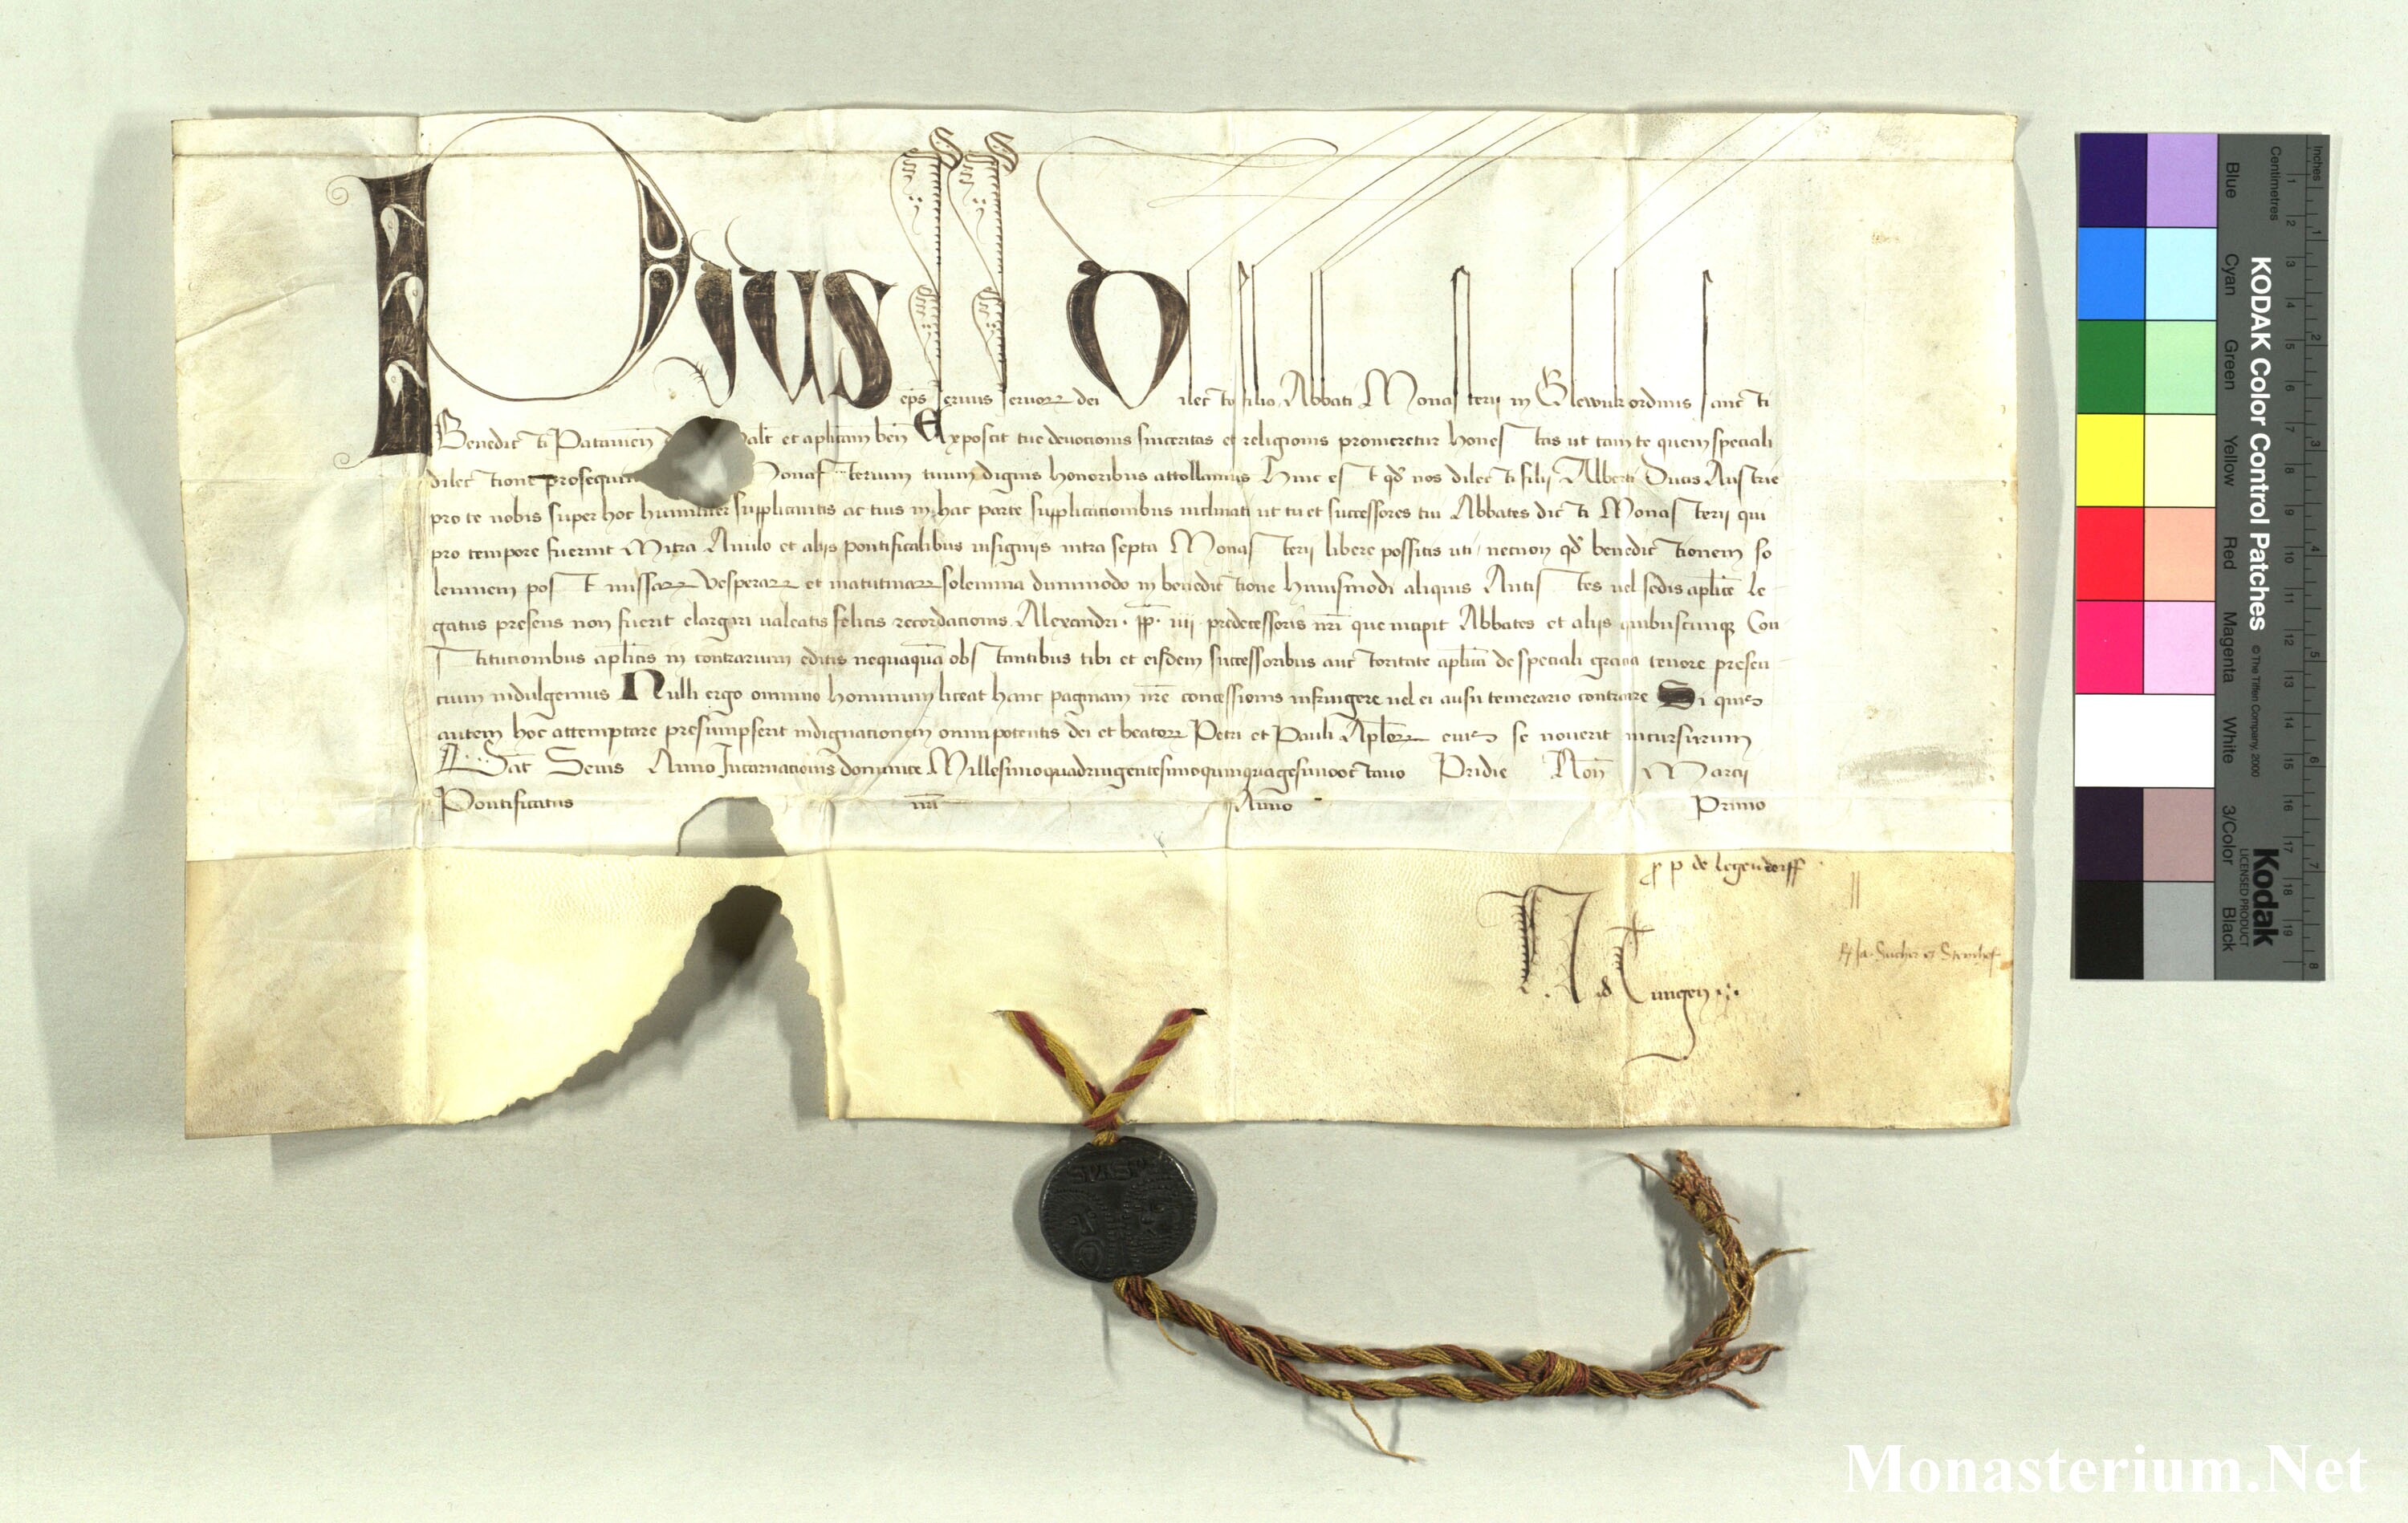 Pius eps servus servorꝝ dei Dilecto filio Abbati Monasterii in Glewnk ordinis sancti
Benedicti Patavien salt et aplicam ben Exposcit tue devotionis sinceritas et religionis promeretur honestas ut tam te quem speciali
dilectione prosequim Monasterium tuum dignis honoribus attollamus Hinc est qd nos dilecti filii Alberti Ducis Austrie
pro te nobis super hoc humiliter supplicantis ac tuis in hac parte supplicationibus inclinati ut tu et successores tui Abbates dicti Monasterii qui
pro tempore fuerint Mitra Anulo et aliis pontificalibus insigniis intra septa Monasterii libere possitis uti necnon qd benedictionem so
lennem post missarꝝ vesperarꝝ et matutinarꝝ solemnia dummodo in benedictione huiusmodi aliquis Antistes vel sedis aplice le
gatus presens non fuerit elargiri valeatis felicis recordationis Alexandri pp iiii predecessoris nri que incipit Abbates et aliis quibuscunqꝫ Con
stitutionibus aplicis in contrarium editis nequaqua obstantibus tibi et eisdem successoribus auctoritate aplica de speciali gratia tenore presen
tium indulgemus Nulli ergo omnino hominum liceat hanc paginam nre concessionis infringere vel ei ausu temerario contraire Si quis
autem hoc attemptare presumpserit indignationem omnipotentis dei et beatorꝝ Petri et Pauli Aplorꝝ eius se noverit incursurum
Dat Senis Anno Incarnationis dominice Millesimoquadringentesimoquinquagesimooctavo Pridie Non Marcii
Pontificatus nri Anno Primo
p de legendorff
N d Tungen
Blue Cyan Green Yellow Red Magenta White 3/Color Black
KODAK Color Control Patches © The Tiffen Company, 2000 Kodak LICENSED PRODUCT
Centimetres 1 2 3 4 5 6 7 8 9 10 11 12 13 14 15 16 17 18 19
Inches 1 2 3 4 5 6 7 8
Monasterium.Net